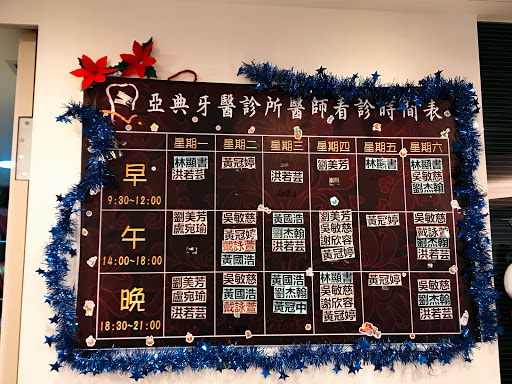 亞典牙醫診所醫師看診時間表
星期一 星期二 星期三 星期四 星期五 星期六
早
9:30~12:00
林顯書
洪若芸
黃冠婷
洪若芸
劉美芳
林顯書
林顯書
吳敏慈
劉杰翰
午
14:00~18:00
劉美芳
盧宛瑜
吳敏慈
黃冠婷
戴詠萱
黃國浩
劉杰翰
洪若芸
劉美芳
吳敏慈
謝欣容
黃冠婷
黃冠婷
吳敏慈
戴詠萱
劉杰翰
洪若芸
晚
18:30~21:00
劉美芳
盧宛瑜
洪若芸
吳敏慈
黃國浩
戴詠萱
黃國浩
劉杰翰
黃冠中
林顯書
吳敏慈
謝欣容
黃冠婷
黃冠婷
吳敏慈
劉杰翰
洪若芸